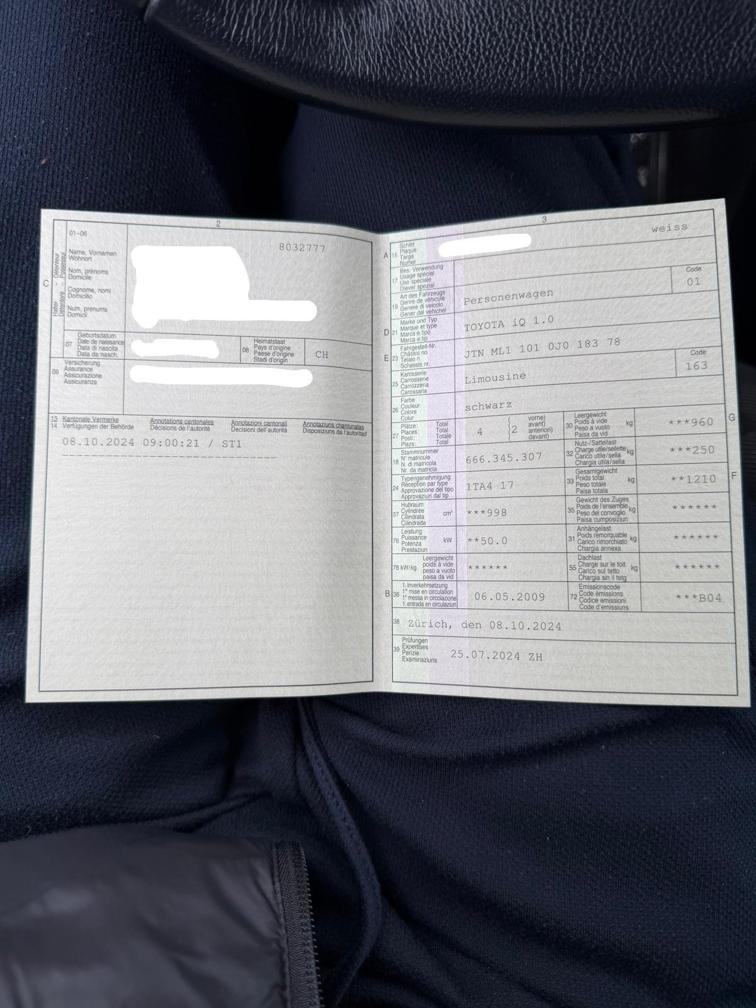 2
01-06
8032777
C
Halter - Détenteur
Detentore - Possessur
Name, Vornamen
Wohnort
Nom, prénoms
Domicile
Cognome, nomi
Domicilio
Num, prenums
Domicil
07
Geburtsdatum
Date de naissance
Data di nascita
Data da nasch.
08
Heimatstaat
Pays d'origine
Paese d'origine
Stadi d'origin
CH
09
Versicherung
Assurance
Assicurazione
Assicuranza
13
14
Kantonale Vermerke
Verfügungen der Behörde
Annotations cantonales
Décisions de l'autorité
Annotazioni cantonali
Decisioni dell'autorità
Annotaziuns chantunalas
Disposiziuns da l'autoritad
08.10.2024 09:00:21 / ST1
3
A 15
Schild
Plaque
Targa
Numer
weiss
17
Bes. Verwendung
Usage spécial
Uso speciale
Diever spezial
19
Art des Fahrzeugs
Genre de véhicule
Genere di veicolo
Gener dal vehichel
Personenwagen
Code
01
D 21
Marke und Typ
Marque et type
Marca e tipo
Marca e tip
TOYOTA iQ 1.0
E 23
Fahrgestell-Nr.
Châssis no
Telaio n.
Schassis nr.
JTN ML1 101 0J0 183 78
25
Karosserie
Carrosserie
Carrozzeria
Carossaria
Limousine
Code
163
26
Farbe
Couleur
Colore
Colur
schwarz
27
Plätze: Total
Places: Total
Posti: Totale
Plazs: Total
4
2
vorne)
avant)
anteriori)
davant)
30
Leergewicht
Poids à vide
Peso a vuoto
Paisa da vid
kg
***960
G
18
Stammnummer
N° matricule
N. di matricola
Nr. da matricla
666.345.307
32
Nutz-/Sattellast
Charge utile/sellette
Carico utile/sella
Chargia utila/sella
kg
***250
24
Typengenehmigung
Réception par type
Approvazione del tipo
Approvaziun dal tip
1TA4 17
33
Gesamtgewicht
Poids total
Peso totale
Paisa totala
kg
**1210
F
37
Hubraum
Cylindrée
Cilindrata
Cilindrada
cm³
***998
35
Gewicht des Zuges
Poids de l'ensemble
Peso del convoglio
Paisa cumposiziun
kg
******
76
Leistung
Puissance
Potenza
Prestaziun
kW
**50.0
31
Anhängelast
Poids remorquable
Carico rimorchiato
Chargia annexa
kg
******
78 kW/kg
Leergewicht
poids à vide
peso a vuoto
paisa da vid
******
55
Dachlast
Charge sur le toit
Carico sul tetto
Chargia sin il tetg
kg
******
B 36
1. Inverkehrsetzung
1re mise en circulation
1a messa in circolazione
1. entrada en circulaziun
06.05.2009
72
Emissionscode
Code émissions
Codice emissioni
Code d'emissiuns
***B04
38
Zürich, den 08.10.2024
39
Prüfungen
Expertises
Perizie
Examinaziuns
25.07.2024 ZH